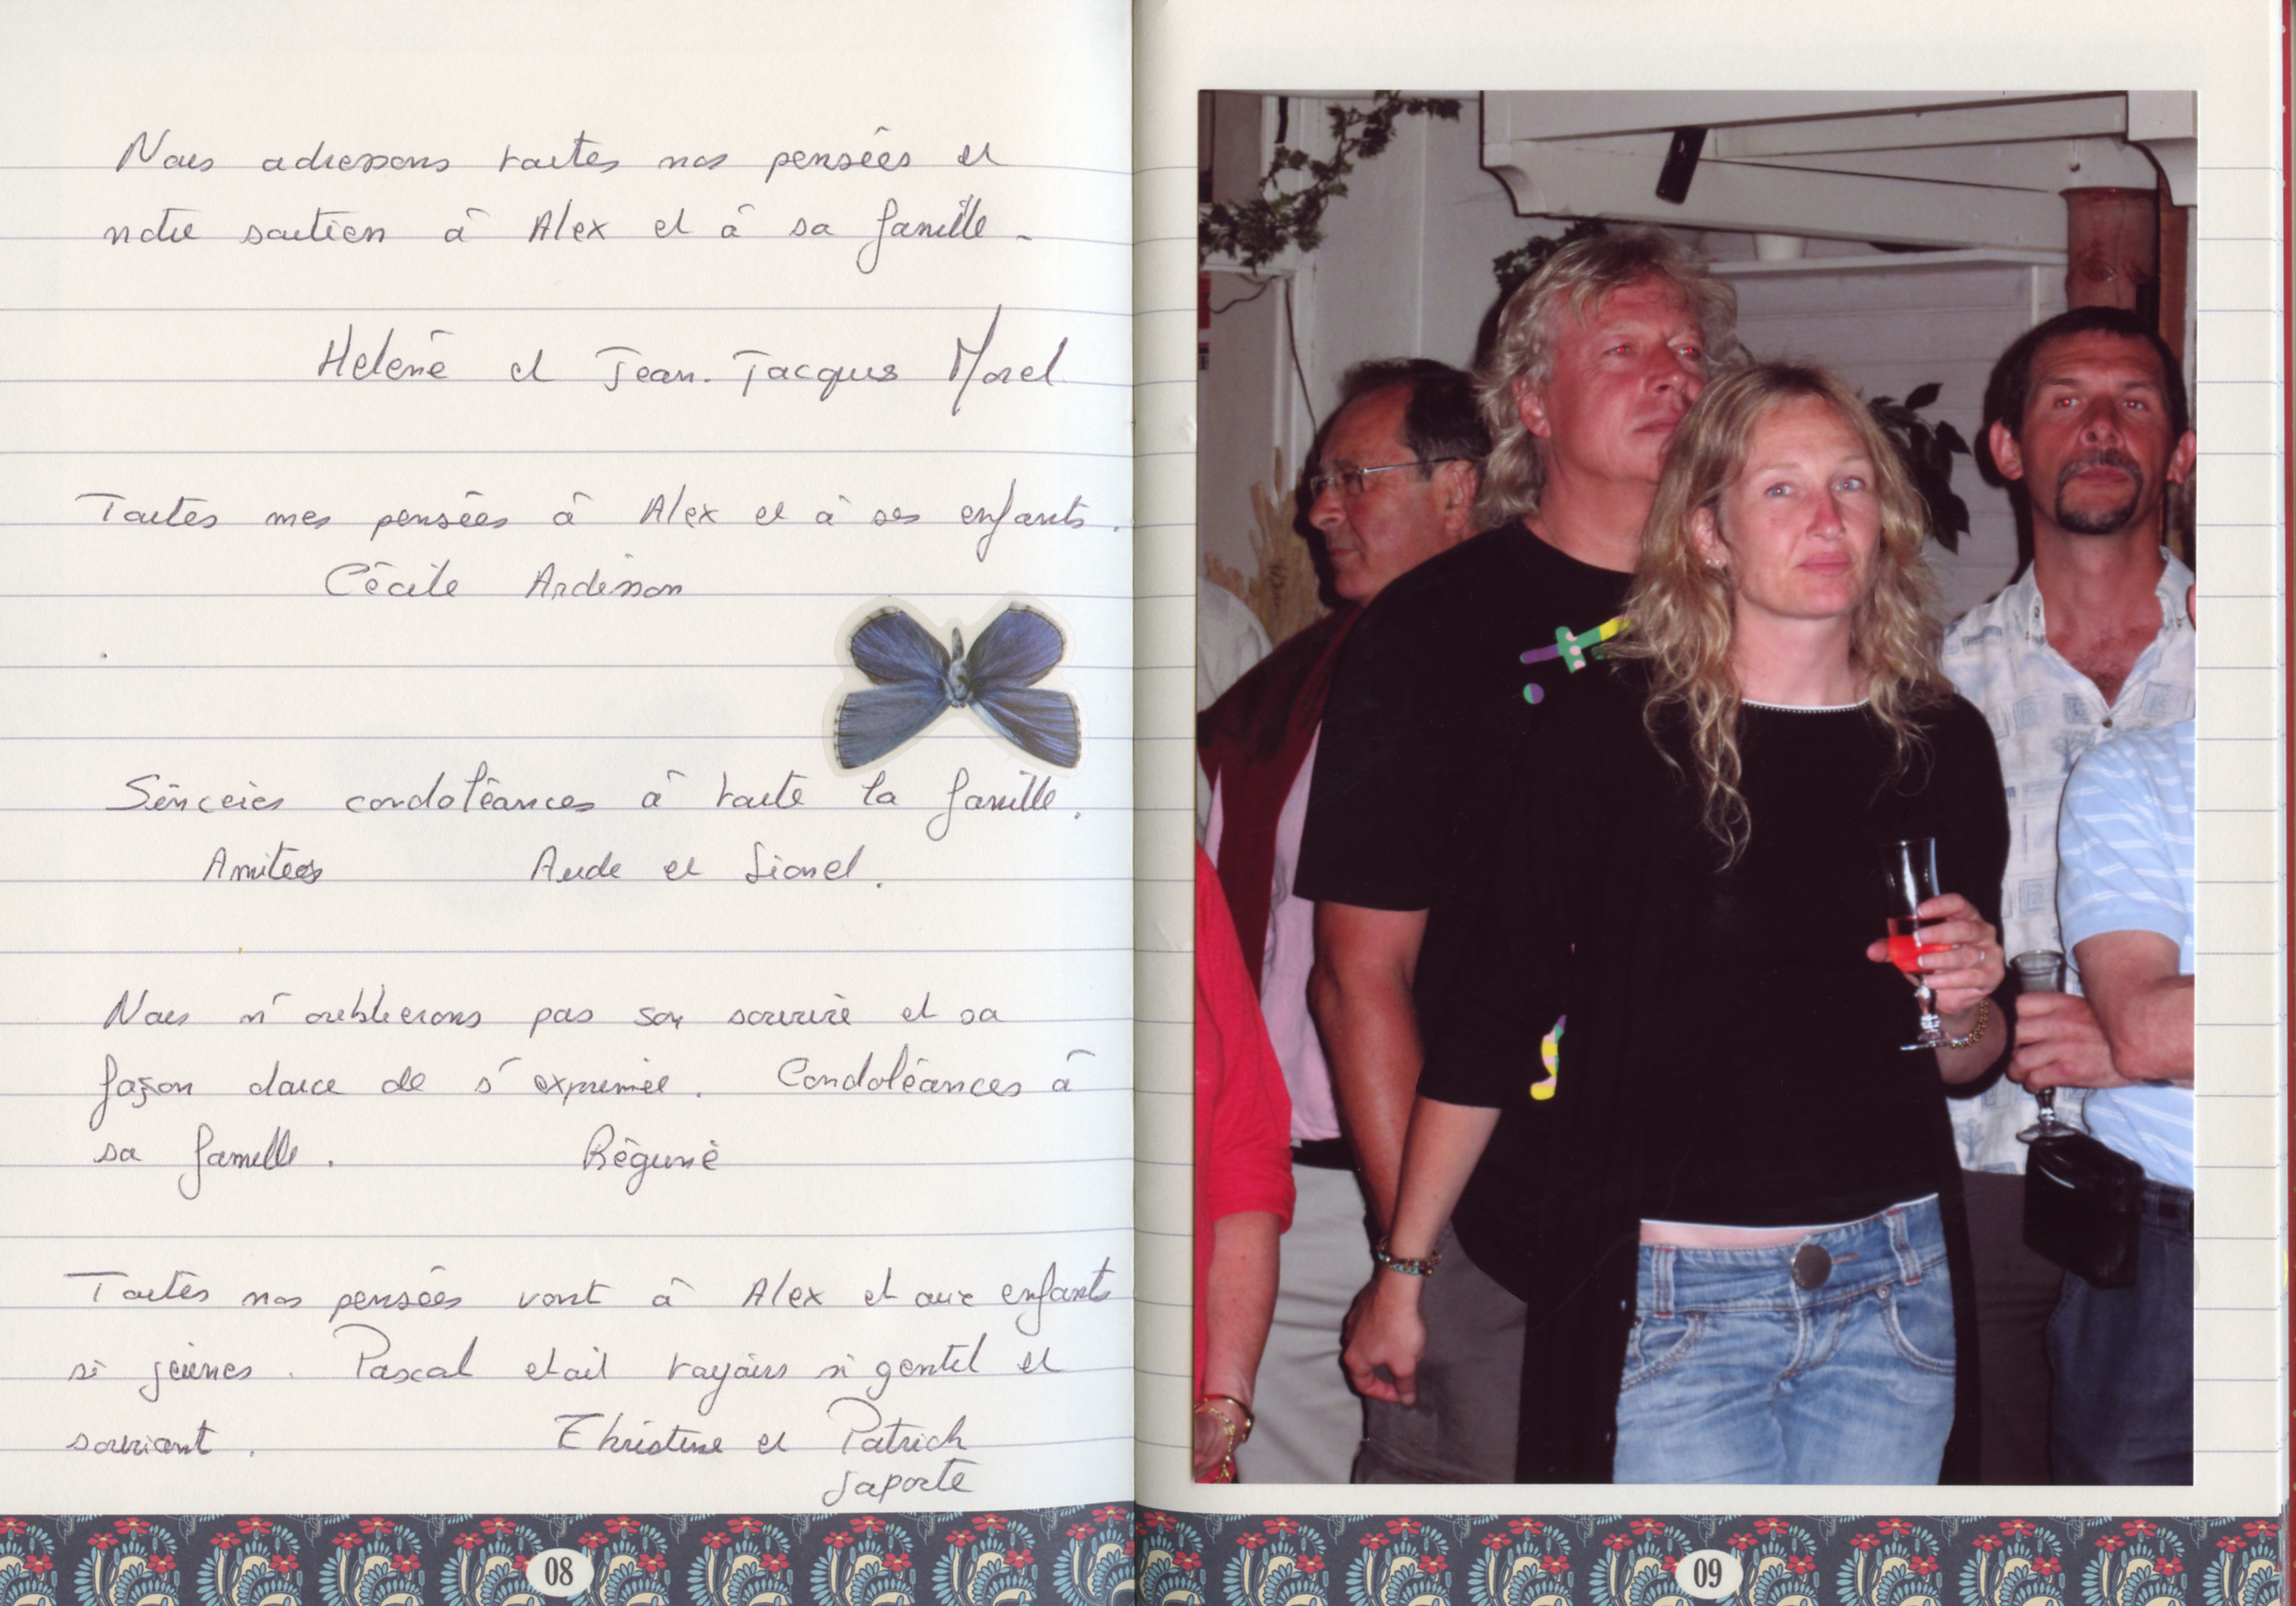 Nous adressons toutes nos pensées et
notre soutien à Alex et à sa famille -
Helene et Jean-Jacques Morel
Toutes mes pensées à Alex et à ses enfants.
Cécile Ardisson
Sincères condoléances à toute la famille.
Amitiés Aude et Lionel.
Nous n'oublierons pas son sourire et sa
façon douce de s'exprimer. Condoléances à
sa famille.
Toutes nos pensées vont à Alex et aux enfants
si jeunes. Pascal etait toujours si gentil et
souriant. Christine et Patrick
Laporte
08
09